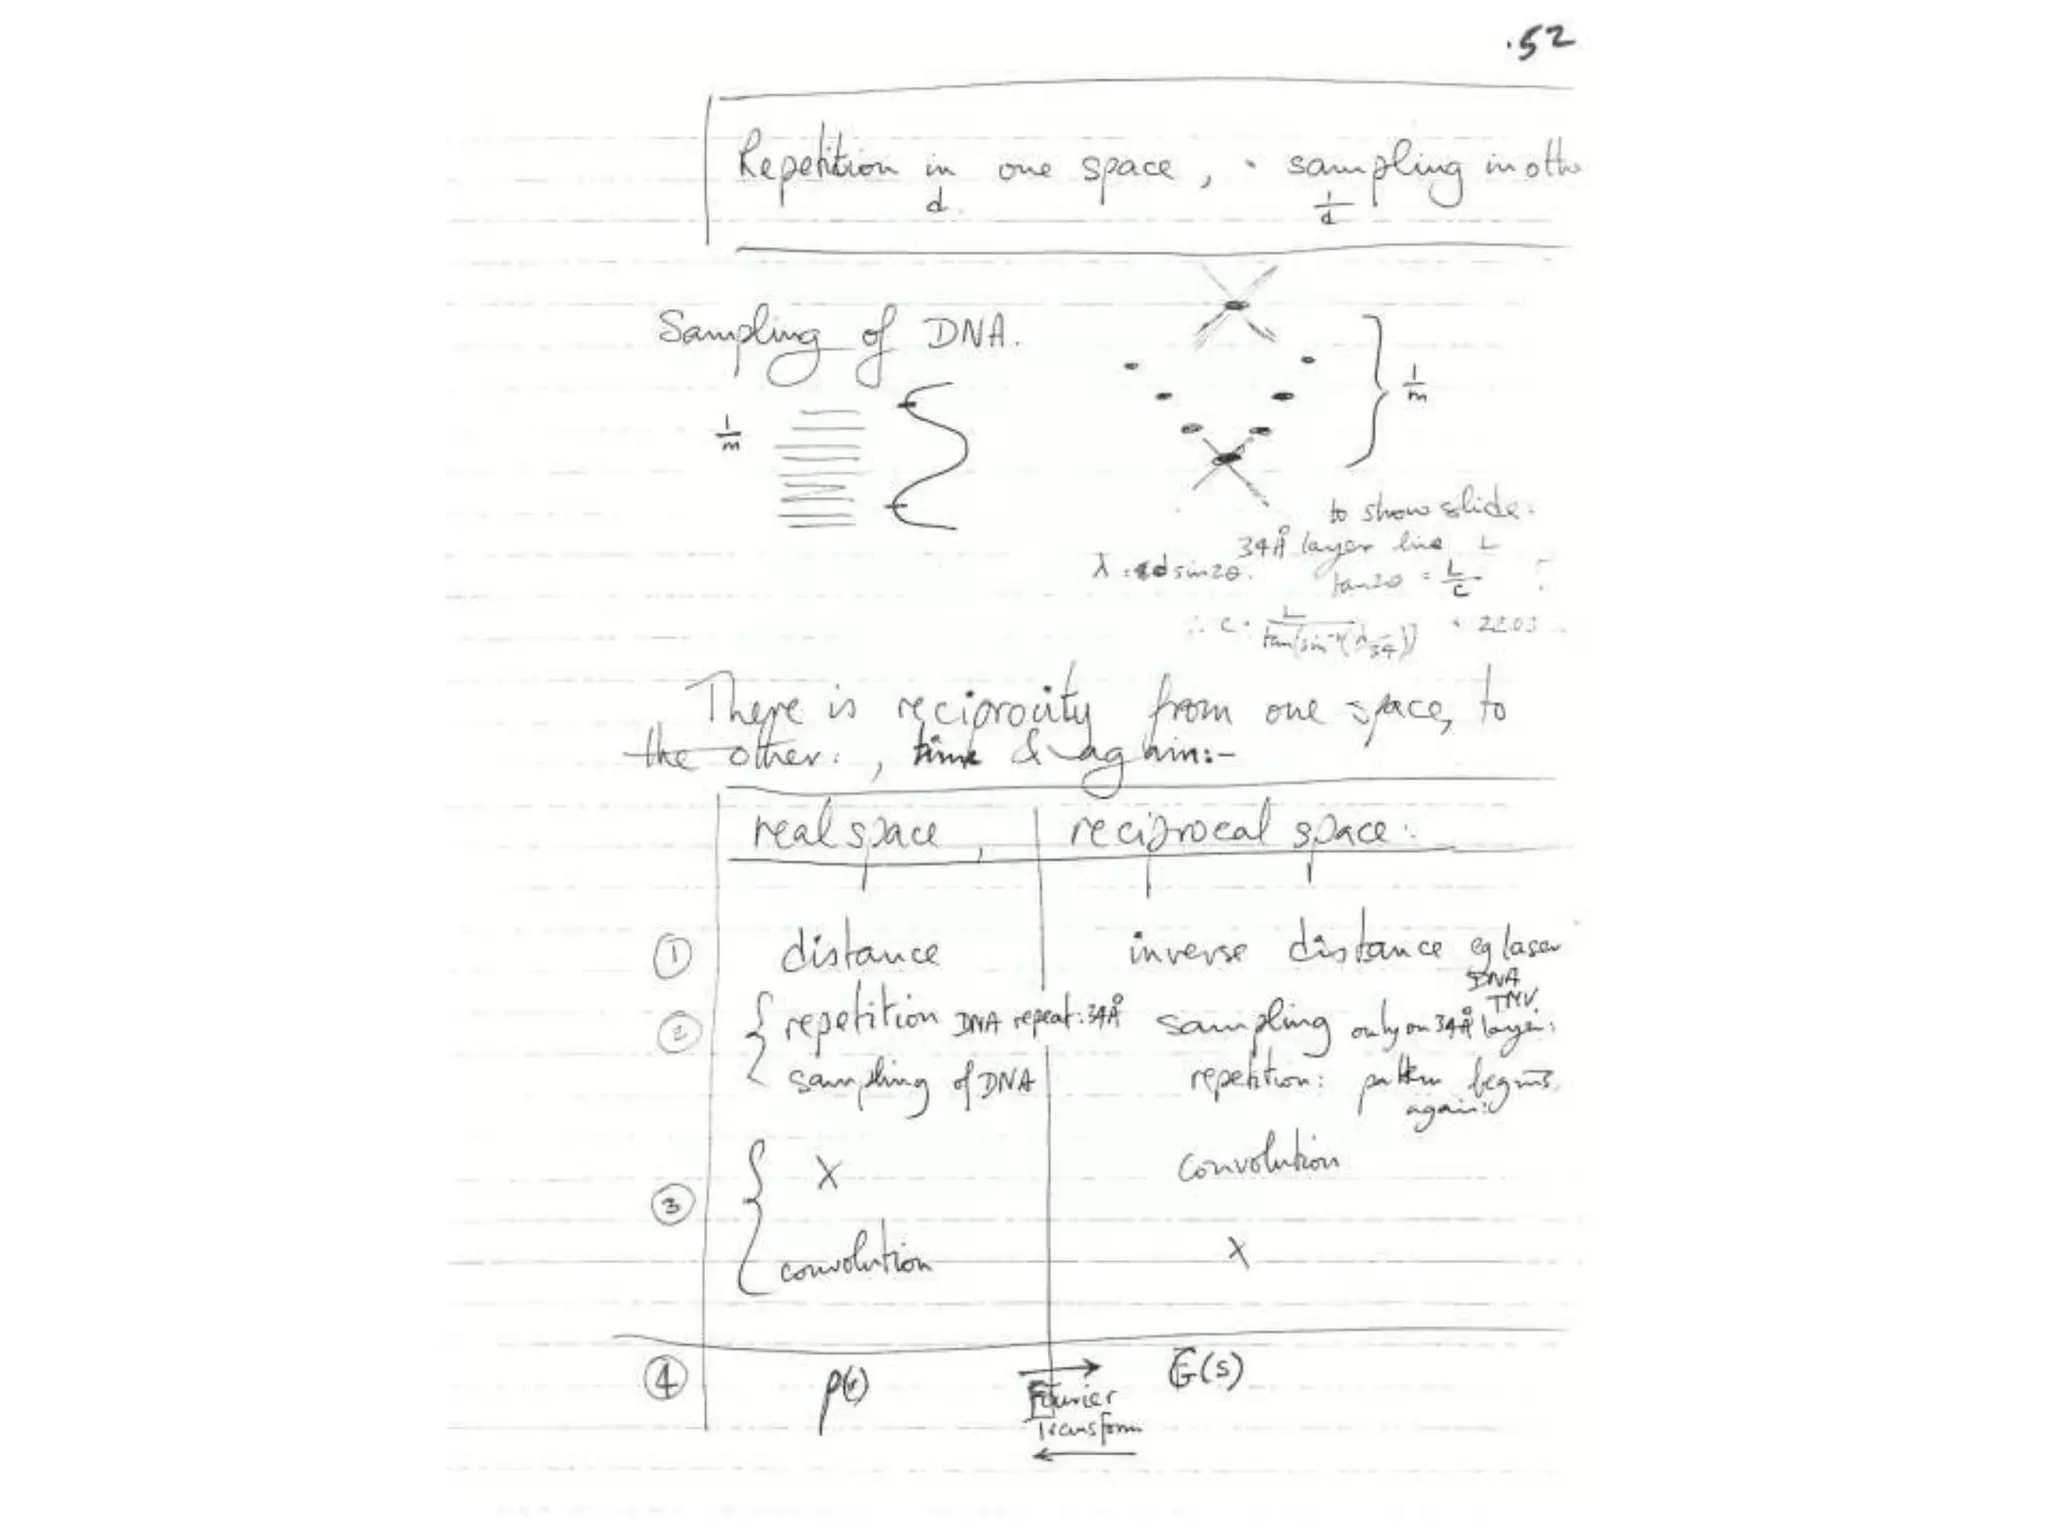 .52
Repetition in one space, sampling in
d
1/d
Sampling of DNA.
1/m
1/m
to show slide.
34Å layer line L
λ = d sin2θ.
tan2θ = L/c
∴ c = L/tan(sin⁻¹(λ/34))
There is reciprocity from one space, to
the other: , time & again:-
real space , reciprocal space:
① distance inverse distance eg laser
DNA
TMV.
② repetition DNA repeat: 34Å sampling only on 34Å layer:
sampling of DNA repetition: pattern begins
again:
X convolution
③
convolution X
④ ρ(r) → G(s)
Fourier
Transform
←